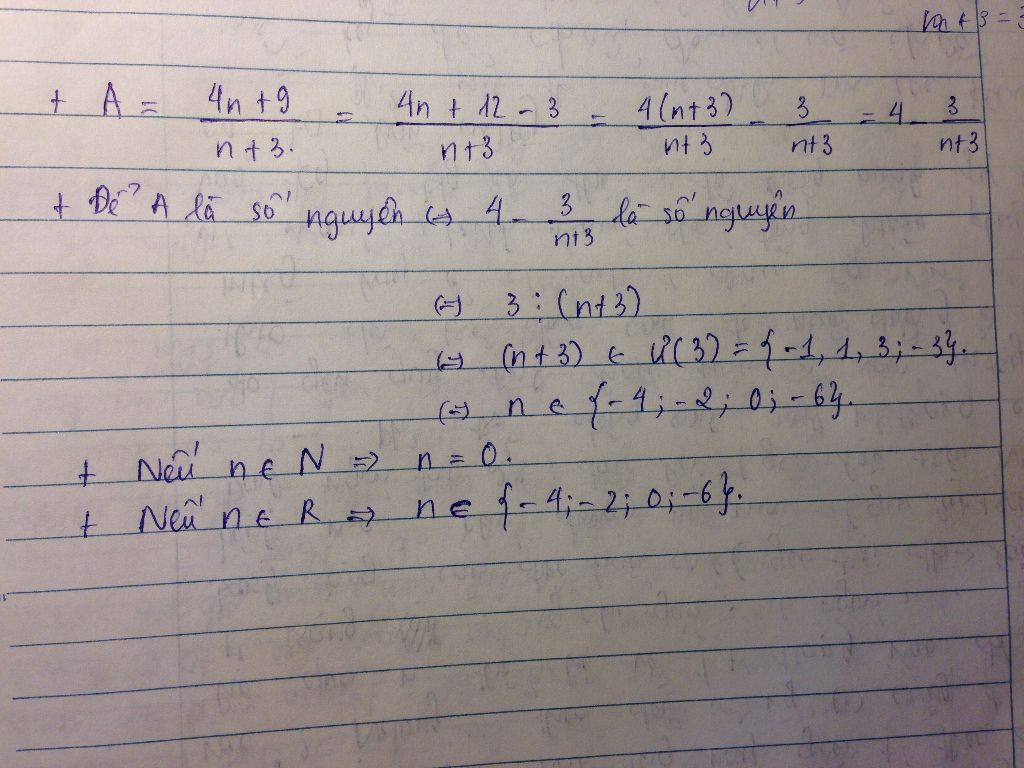 n + 3 = 3
+ A = (4n + 9)/(n + 3). = (4n + 12 - 3)/(n+3) = 4(n+3)/(n+3) - 3/(n+3) = 4 - 3/(n+3)
+ Để A là số nguyên (=) 4 - 3/(n+3) là số nguyên
(=) 3 ⋮ (n+3)
(=) (n+3) ∈ Ư(3) = {-1, 1, 3; -3}.
(=) n ∈ {-4; -2; 0; -6}.
+ Nếu n ∈ N => n = 0.
+ Nếu n ∈ R => n ∈ {-4; -2; 0; -6}.